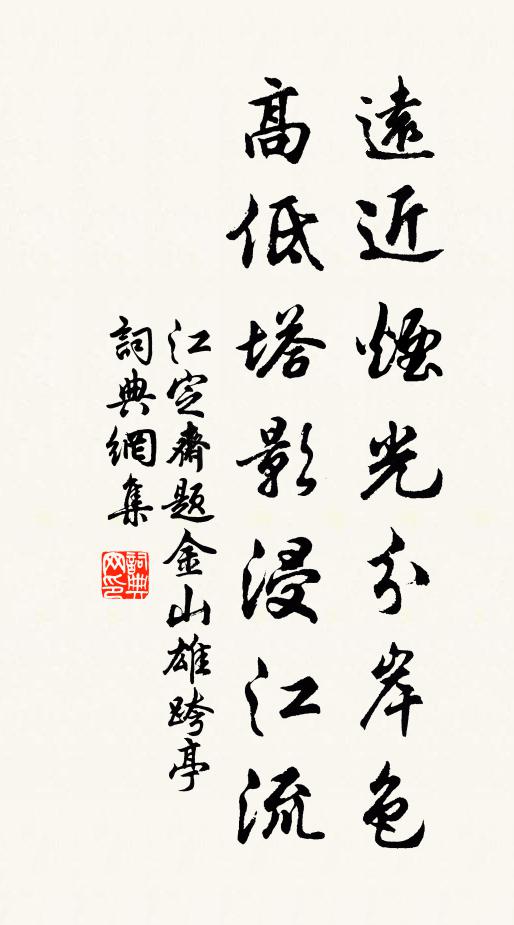 遠近煙光分岸色
高低塔影浸江流
江定齋題金山雄跨亭
詞典網集
詞典網印